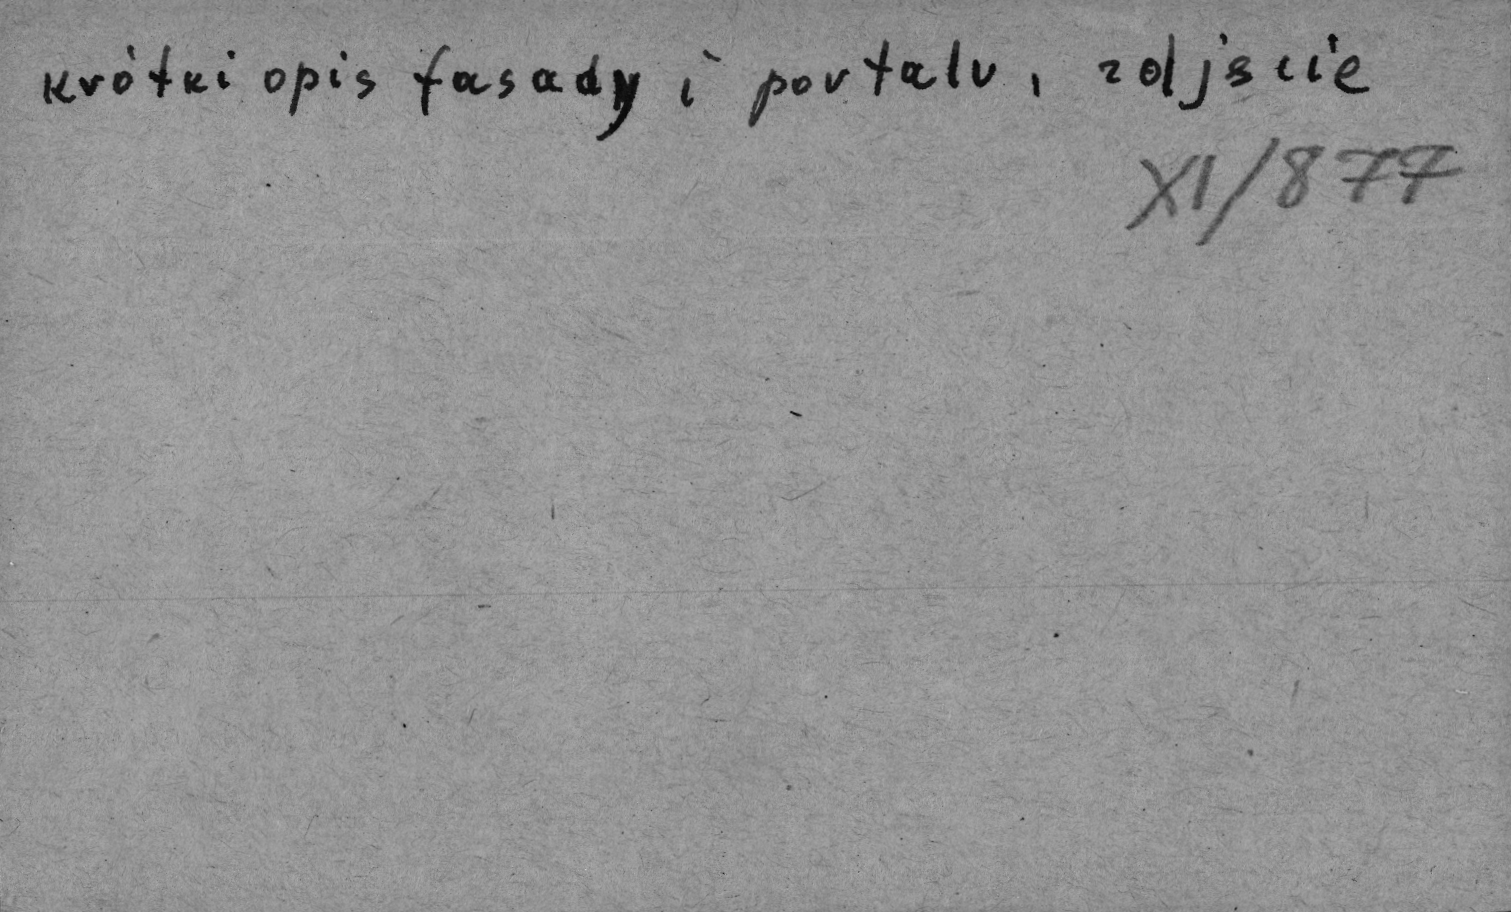 krótki opis fasady i portalu, zdjście
XI/877